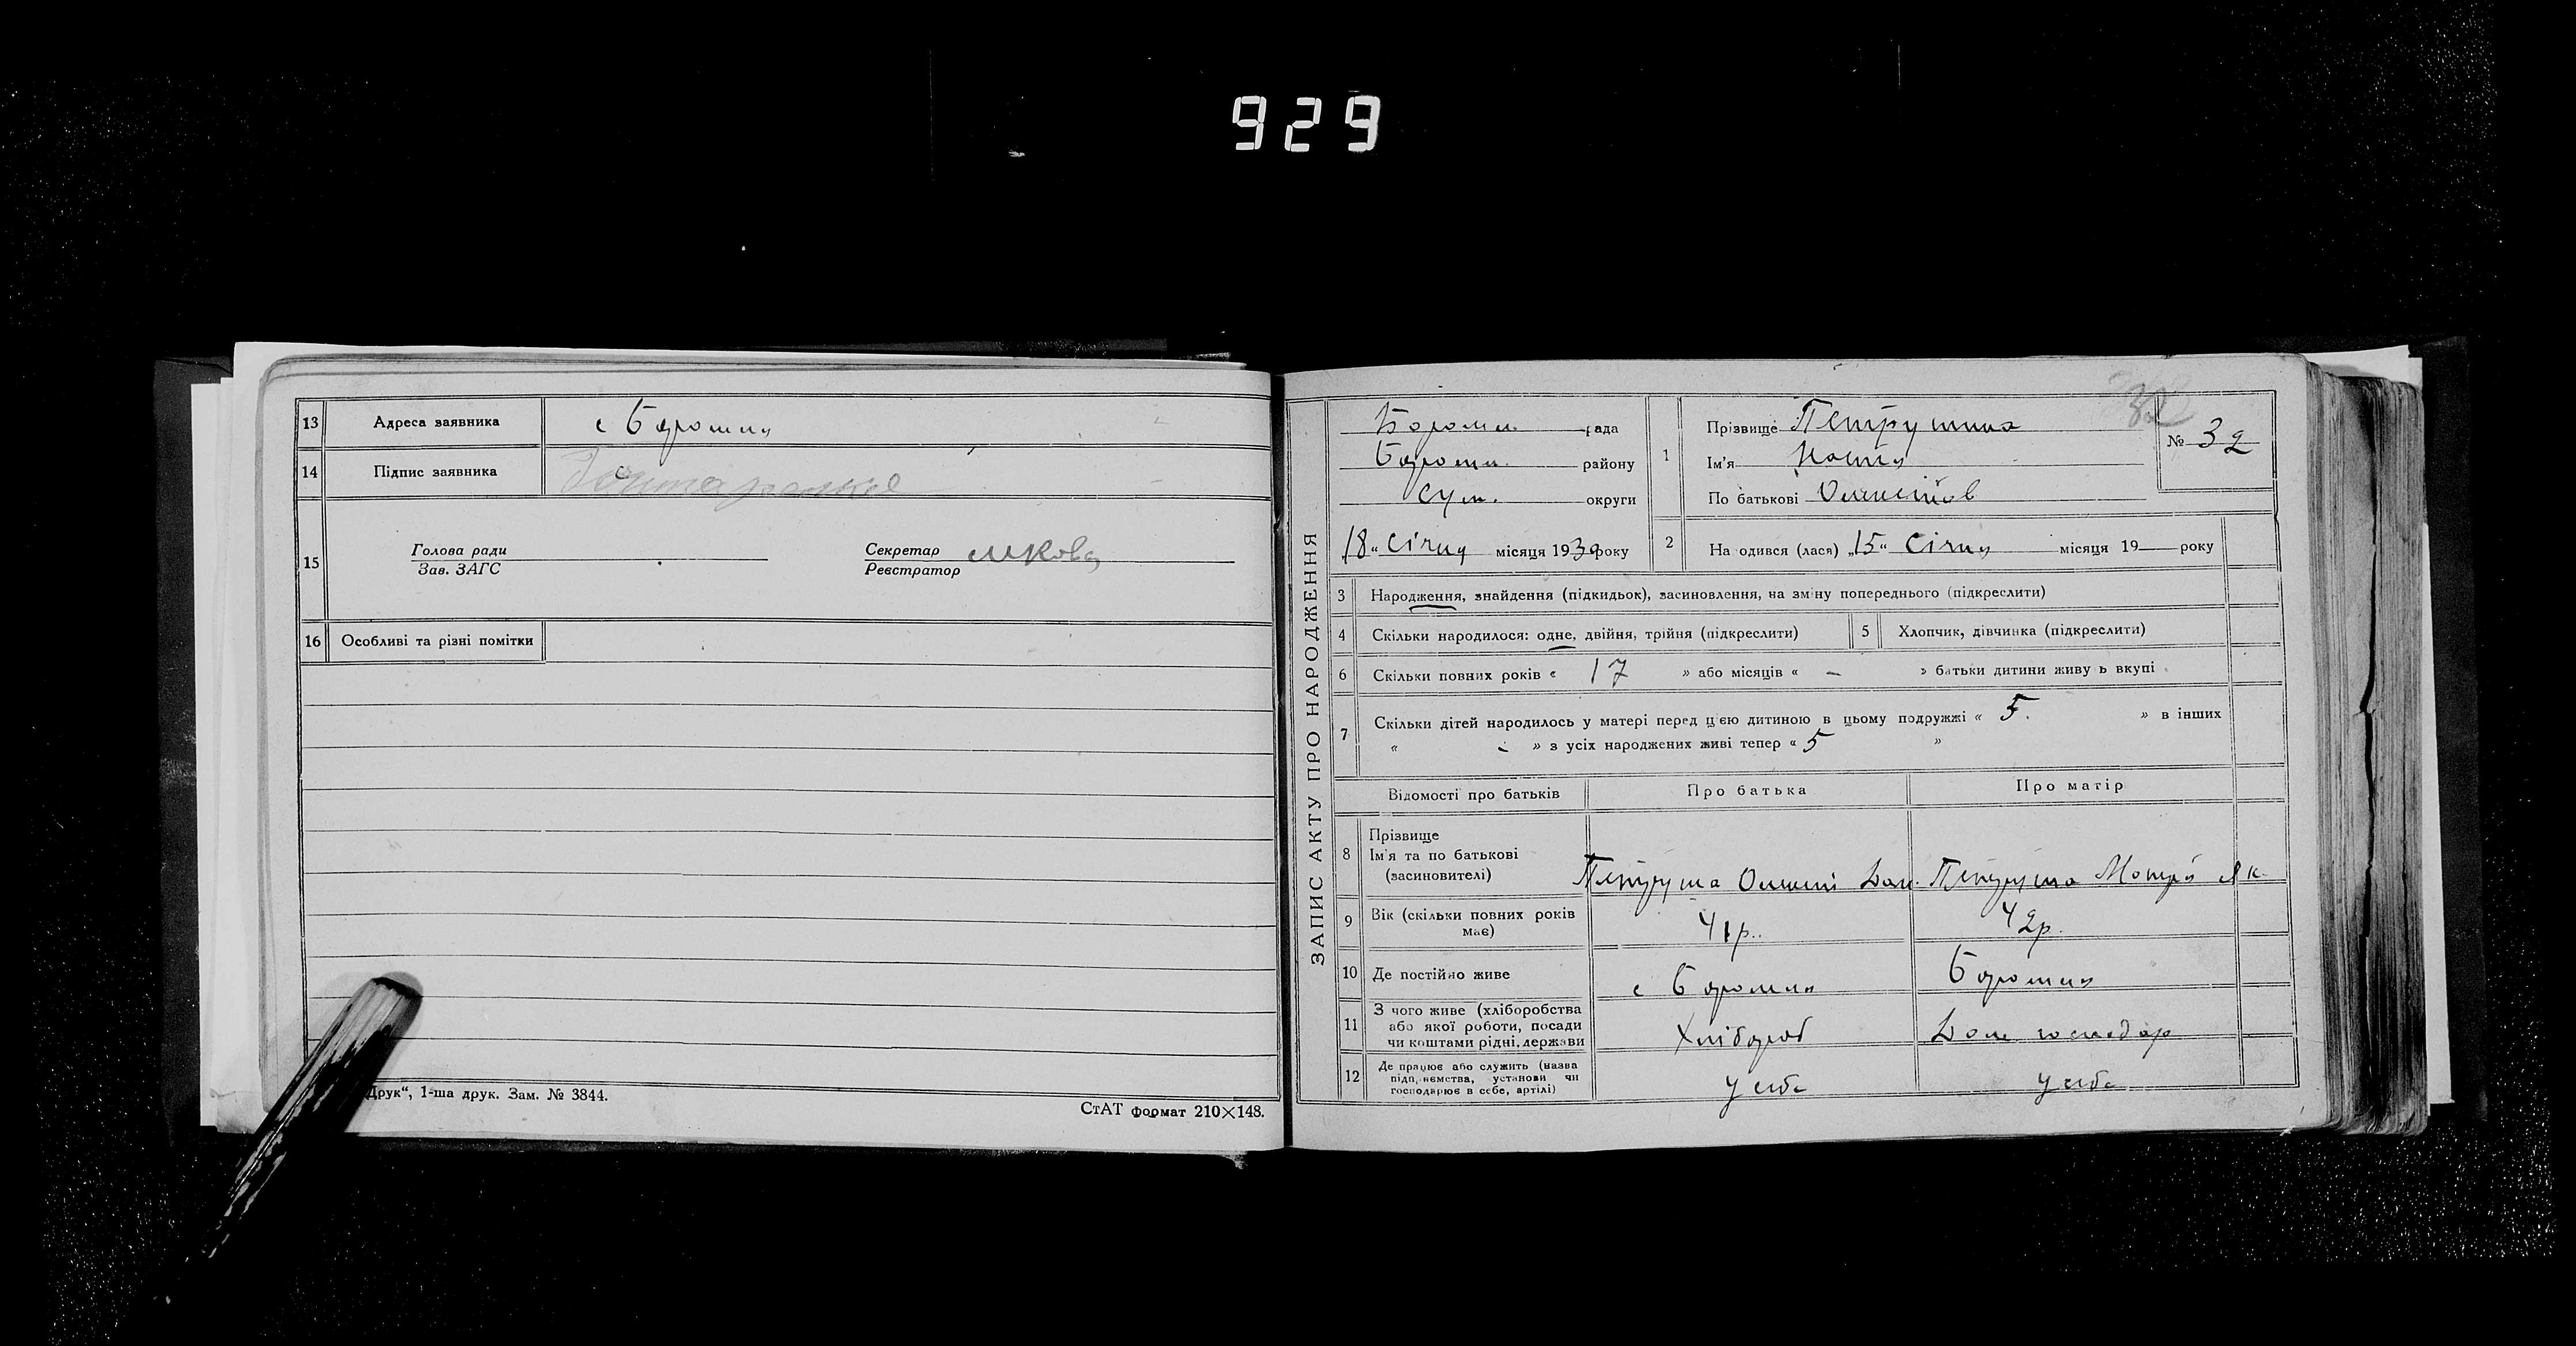 929
13 Адреса заявника с Боромля
14 Підпис заявника
15 Голова ради
Зав. ЗАГС
Секретар
Реєстратор
16 Особливі та різні помітки
Друк“, 1-ша друк. Зам. № 3844.
СтАТ формат 210×148.
ЗАПИС АКТУ ПРО НАРОДЖЕННЯ
Боромл. рада
Боромл. району
Сум. округи
„18“ Січня місяця 1930 року
№ 32
1 Прізвище
Ім'я Настя
По батькові
2 На одився (лася) „15“ Січня місяця 19— року
3 Народження, знайдення (підкидьок), засиновлення, на зміну попереднього (підкреслити)
4 Скільки народилося: одне, двійня, трійня (підкреслити)
5 Хлопчик, дівчинка (підкреслити)
6 Скільки повних років « 17 » або місяців « – » батьки дитини живу ь вкупі
7 Скільки дітей народилось у матері перед цією дитиною в цьому подружжі « 5. » в інших
« - » з усіх народжених живі тепер « 5 »
Відомості про батьків Про батька Про матір
8 Прізвище
Ім'я та по батькові
(засиновителі)
Петруша Олексій Дан. Петруша Мотря Як.
9 Вік (скільки повних років
має)
41р. 42р.
10 Де постійно живе с Боромля Боромля
11 З чого живе (хліборобства
або якої роботи, посади
чи коштами рідні, держави
Хлібороб Дом господар
12 Де працює або служить (назва
підп,иємства, установи чи
господарює в себе, артілі)
у себе у себе